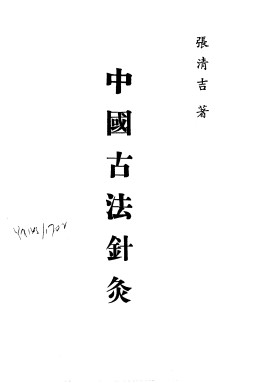 張清吉 著
中國古法針灸